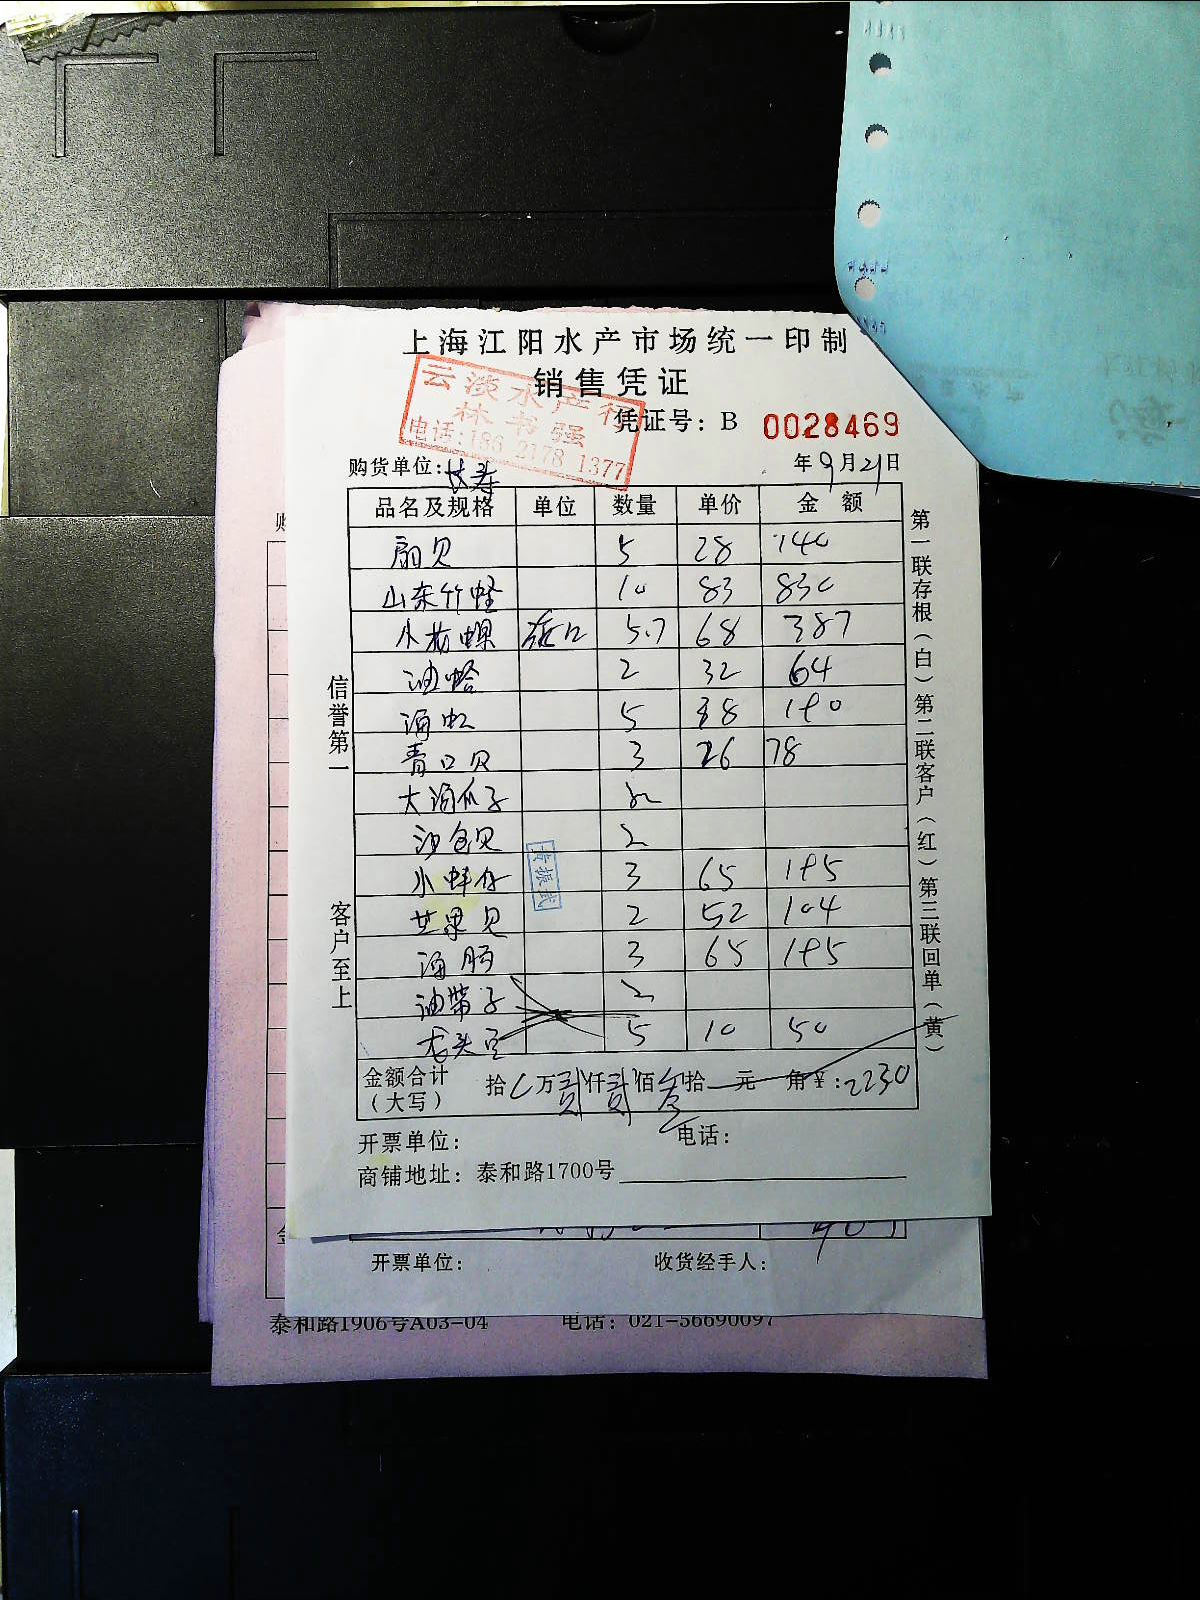 上海江阳水产市场统一印制
销售凭证
云淡水产行
林书强
电话:186 2178 1377
凭证号: B 0028469
购货单位: 长寿 年9月21日
品名及规格 单位 数量 单价 金额
扇贝 5 28 140
山东竹蛏 10 83 830
小 螺 5.7 68 387
油蛤 2 32 64
海虹 5 38 190
青口贝 3 26 78
大海瓜子
沙包贝 2
小蚌仔 3 65 195
芒果贝 2 52 104
海肠 3 65 195
油带子 2
龙头豆 5 10 50
金额合计(大写) 拾 万贰仟贰佰叁拾 元 角 ¥: 2230
开票单位: 电话:
商铺地址: 泰和路1700号
信誉第一 客户至上
第一联存根(白)第二联客户(红)第三联回单(黄)
开票单位: 收货经手人:
泰和路1906号A03-04 电话: 021-56690097